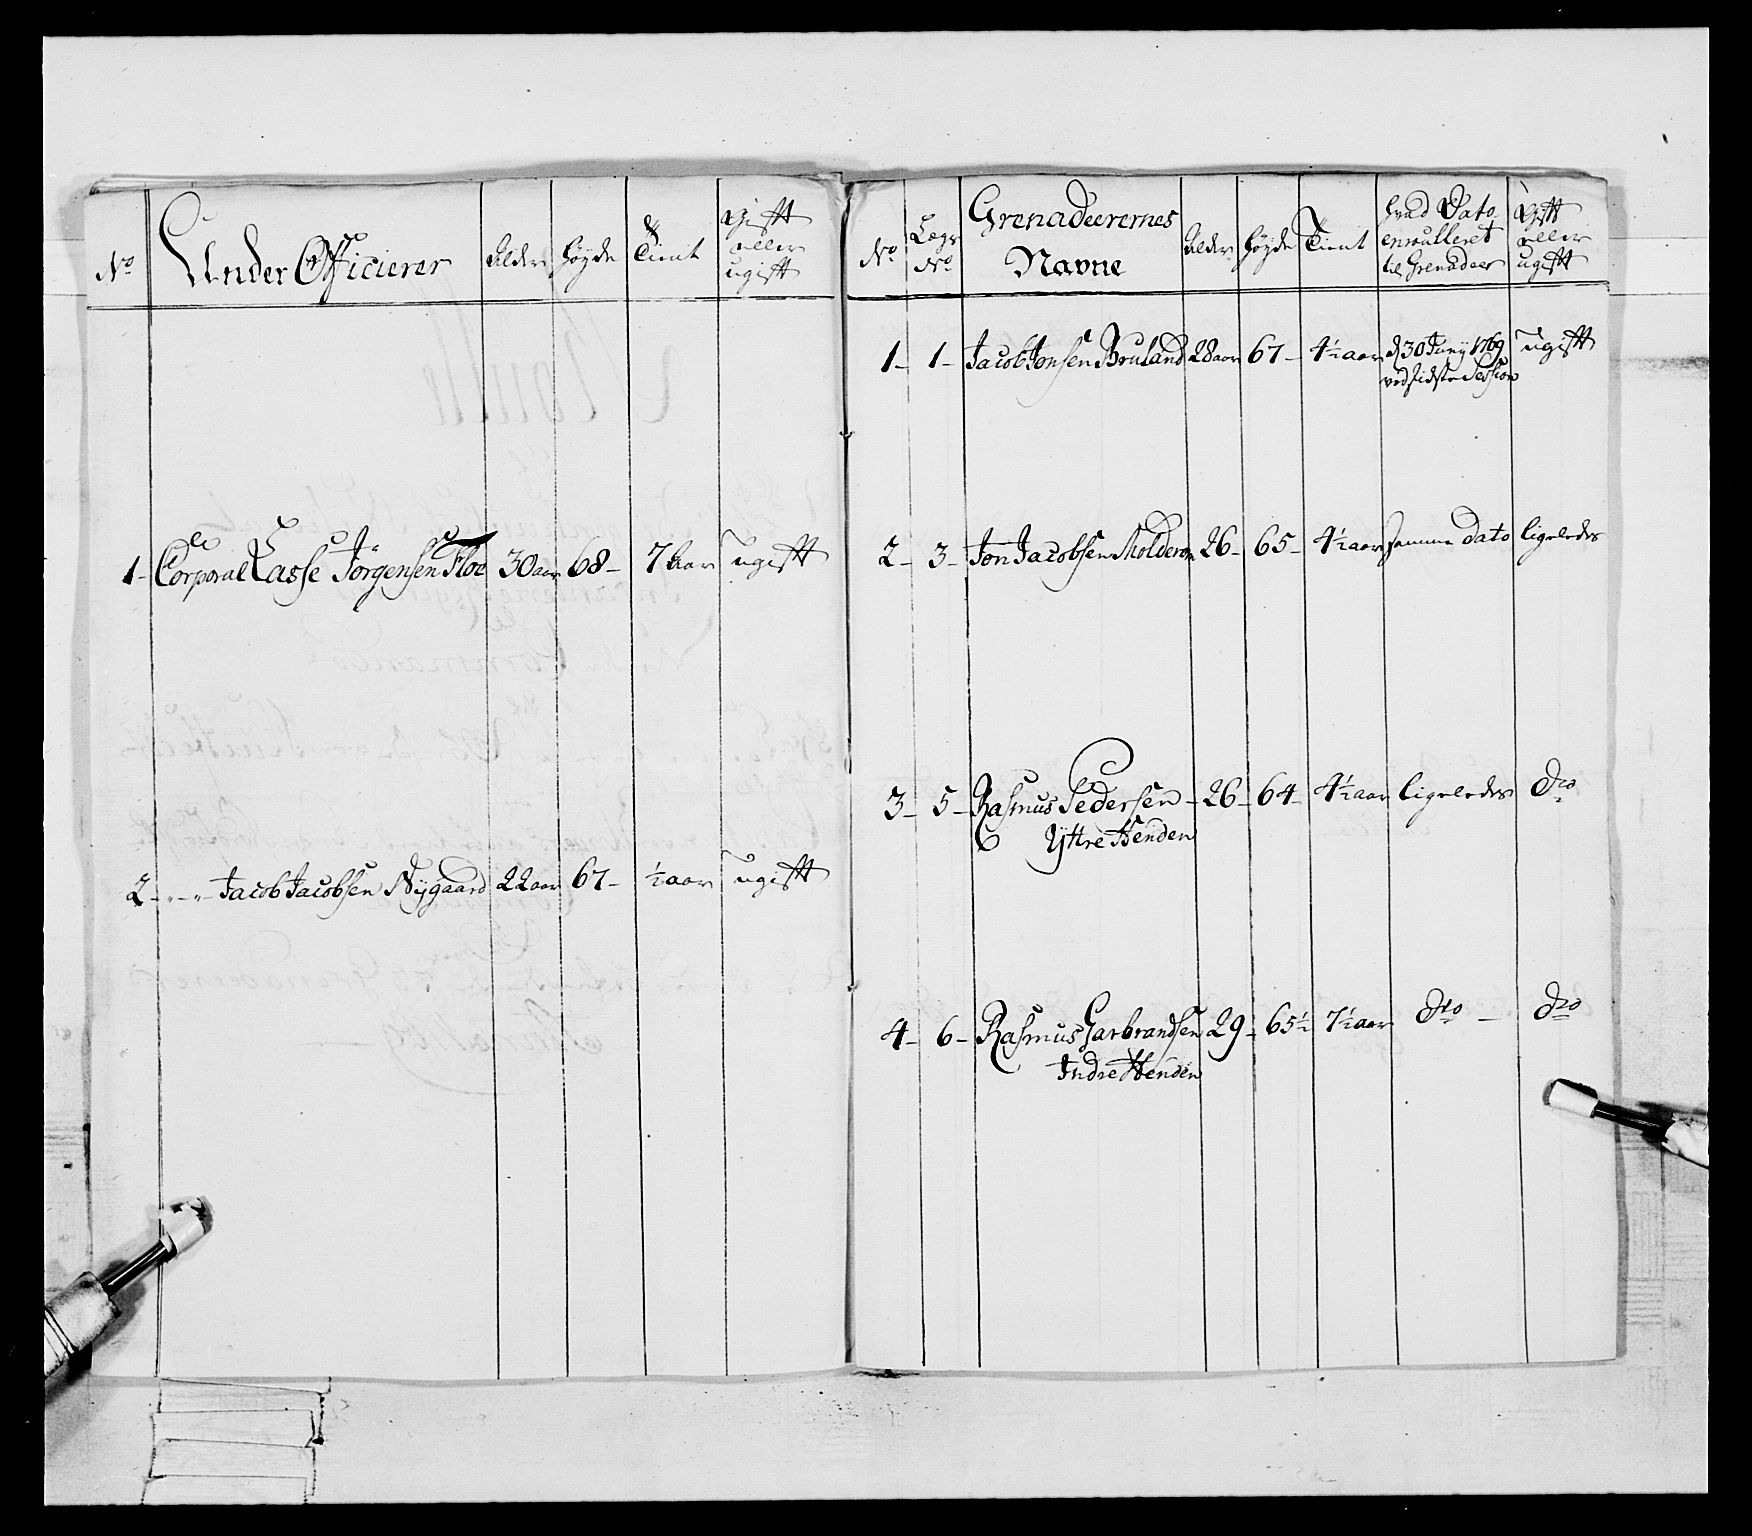 No Under Officierer Alder Høyde Tient Gift eller ugift
1 - Corporal Lasse Jørgensen Floe 30 aar 68 - 7 aar ugift
2 - " - " - Jacob Jacobsen Nygaard 22 aar 67 - ½ aar ugift
No Lægs No Grenadeerernes Navne Alder Høyde Tient hvad Dato enroulleret til Grenadeer Gift eller ugift
1 - 1 - Jacob Jonsen Bruland 28 aar 67 - 4½ aar d 30 Juny 1769 ugift
ved sidste Session
2 - 3 - Jon Jacobsen Molderen 26 - 65 - 4½ aar samme dato ligeledes
3 - 5 - Rasmus Pedersen - 26 - 64 - 4½ aar ligeledes dto
Yttre Henden
4 - 6 - Rasmus Garbrandsen 29 - 65½ 7½ aar dto - dto
Indre Henden